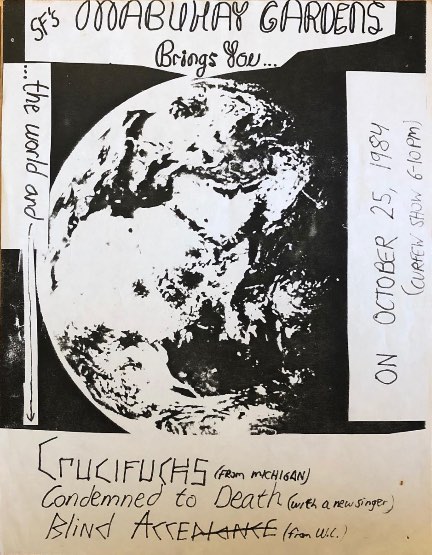 SF's MABUHAY GARDENS
Brings You...
...the world and
ON OCTOBER 25, 1984
(CURFEW SHOW 6-10PM)
CRUCIFUCKS (FROM MICHIGAN)
Condemned to Death (with a new singer)
Blind ACCEPTANCE (from W.C.)